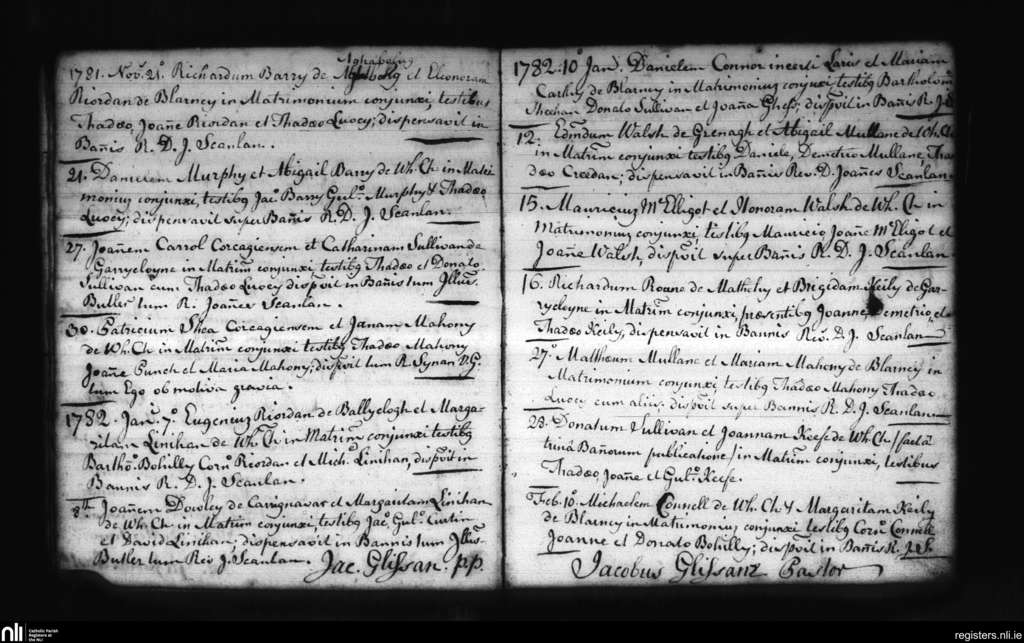 Aghabolog
1781. Novr. 21o. Richardum Barry de et Eleonoram
Riordan de Blarney in Matrimonium conjunxi, testibus
Thadæo, Joañe Riordan et Thadæo Lucey; dispensavit in
Bañis R. D. J. Scanlan.
21. Danielem Murphy et Abigail Barry de Wh. Ch in Matri
monium conjunxi, testibq Jaco. Barry Gulo. Murphy & Thadæo
Lucey; dispensavit super Bañis R. D. J. Scanlan.
27. Joañem Carrol Corcagiensem et Catharinam Sullivan de
Garrycloyne in Matrim̄ conjunxi testibq Thadæo et Donato
Sullivan cum Thadæo Lucey dispvit in Bañis tum Jllus.
Butler tum R. Joañes Scanlan.
30. Patricium Shea Corcagiensem et Janam Mahony
de Wh. Ch in Matrim̄ conjunxi testibq Thadæo Mahony
Joañe Punch et Maria Mahony; dispvit tum R. Synan V.G.
tum Ego ob motiva gravia.
1782. Janr. 7o. Eugenium Riordan de Ballyclogh et Marga-
ritam Linihan de Wh. Ch in Matrim̄ conjunxi testibq
Bartho. Bohilly Corno. Riordan et Mich. Linihan, dispvit in
Bannis R. D. J. Scanlan.
8th. Joañem Dowley de Carignavar et Margaritam Linihan
de Wh. Ch in Matrim̄ conjunxi, testibq Jaco. Gulo. Curtin
et David Linihan; dispensavit in Bannis tum Jllus.
Butler tum Revd J. Scanlan. Jac. Glissan. p.p.
1782. 10 Janr. Danielem Connor incerti Laris et Mariam
Carthy de Blarney in Matrimonium conjunxi testibq Bartholom
Sheehan Donato Sullivan et Joaña; dispvit in Bañis R. J.
12. Edm̄dum Walsh de Grenagh et Abigail Mullane de Wh. Ch
in Matrim̄ conjunxi testibq Daniele, Demetrio Mullane, Tha
dæo Creedan; dispensavit in Bañis Rev. D. Joañes Scanlan
15. Mauricium McElligot et Honoram Walsh de Wh. Ch in
Matrimonium conjunxi, testibq Mauricio Joañe McEligot et
Joañe Walsh, dispvit super Bañis R. D. J. Scanlan
16. Richardum Roane de Mathehy et Brigidam Keily de Gar-
rycloyne in Matrim̄ conjunxi, præsentibq Joanne, Demetrio, et
Thadæo Keily, dispensavit in Bannis Rev. D. J. Scanlan
27o. Matthæum Mullane et Mariam Mahony de Blarney in
Matrimonium conjunxi, testibq Thadæo Mahony Thadæo
Lucey cum aliis; dispvit super Bannis R. D. J. Scanlan
28. Donatum Sullivan et Joannam Keefe de Wh. Ch /factâ
trinâ Bañorum publicatione/ in Matrim̄ conjunxi, testibus
Thadæo, Joañe et Gulo. Keefe.
Feb. 10o. Michaelem Connell de Wh. Ch & Margaritam Keily
de Blarney in Matrimonium conjunxi testibq Corno. Connell
Joanne et Donato Bohilly; dispvit in Bañis R. J. S.
Jacobus Glissanz Pastor
nli
Catholic Parish
Registers at
the NLI
registers.nli.ie